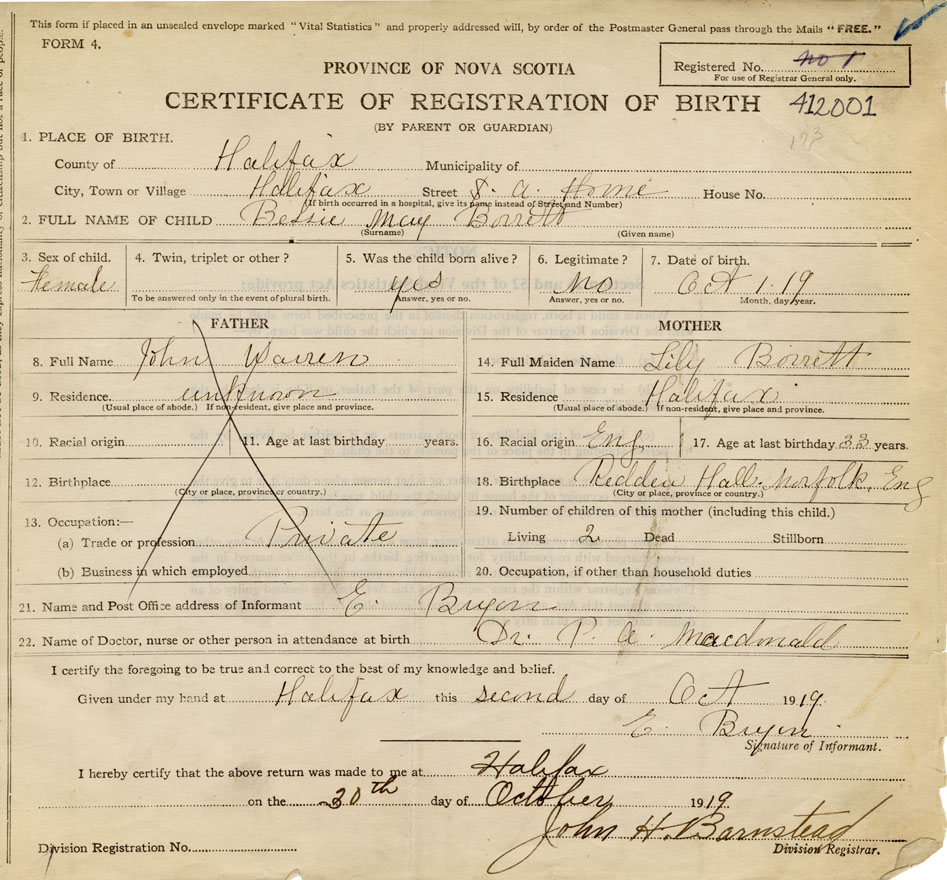 This form if placed in an unsealed envelope marked "Vital Statistics" and properly addressed will, by order of the Postmaster General pass through the Mails "FREE."
FORM 4.
Registered No. No 1
For use of Registrar General only.
PROVINCE OF NOVA SCOTIA
CERTIFICATE OF REGISTRATION OF BIRTH 412001
(BY PARENT OR GUARDIAN)
173
1. PLACE OF BIRTH.
County of Halifax Municipality of
City, Town or Village Halifax Street S. A. Home House No.
(If birth occurred in a hospital, give its name instead of Street and Number)
2. FULL NAME OF CHILD Bessie May Borrett
(Surname) (Given name)
3. Sex of child. 4. Twin, triplet or other? 5. Was the child born alive? 6. Legitimate? 7. Date of birth.
Female yes No Oct 1. 19
To be answered only in the event of plural birth. Answer, yes or no. Answer, yes or no. Month, day, year.
FATHER
8. Full Name John Warren
9. Residence. unknown
(Usual place of abode.) If non-resident, give place and province.
10. Racial origin 11. Age at last birthday years.
12. Birthplace
(City or place, province or country.)
13. Occupation:—
(a) Trade or profession Private
(b) Business in which employed
MOTHER
14. Full Maiden Name Lily Borrett
15. Residence Halifax
(Usual place of abode.) If non-resident, give place and province.
16. Racial origin Eng. 17. Age at last birthday 33 years.
18. Birthplace Redden Hall. Norfolk, Eng
(City or place, province or country.)
19. Number of children of this mother (including this child.)
Living 2 Dead Stillborn
20. Occupation, if other than household duties
21. Name and Post Office address of Informant E. Bryon
22. Name of Doctor, nurse or other person in attendance at birth Dr. P. A. Macdonald
I certify the foregoing to be true and correct to the best of my knowledge and belief.
Given under my hand at Halifax this second day of Oct 1919.
E. Bryon
Signature of Informant.
I hereby certify that the above return was made to me at Halifax
on the 30th day of October 1919.
John H. Barnstead
Division Registration No. Division Registrar.